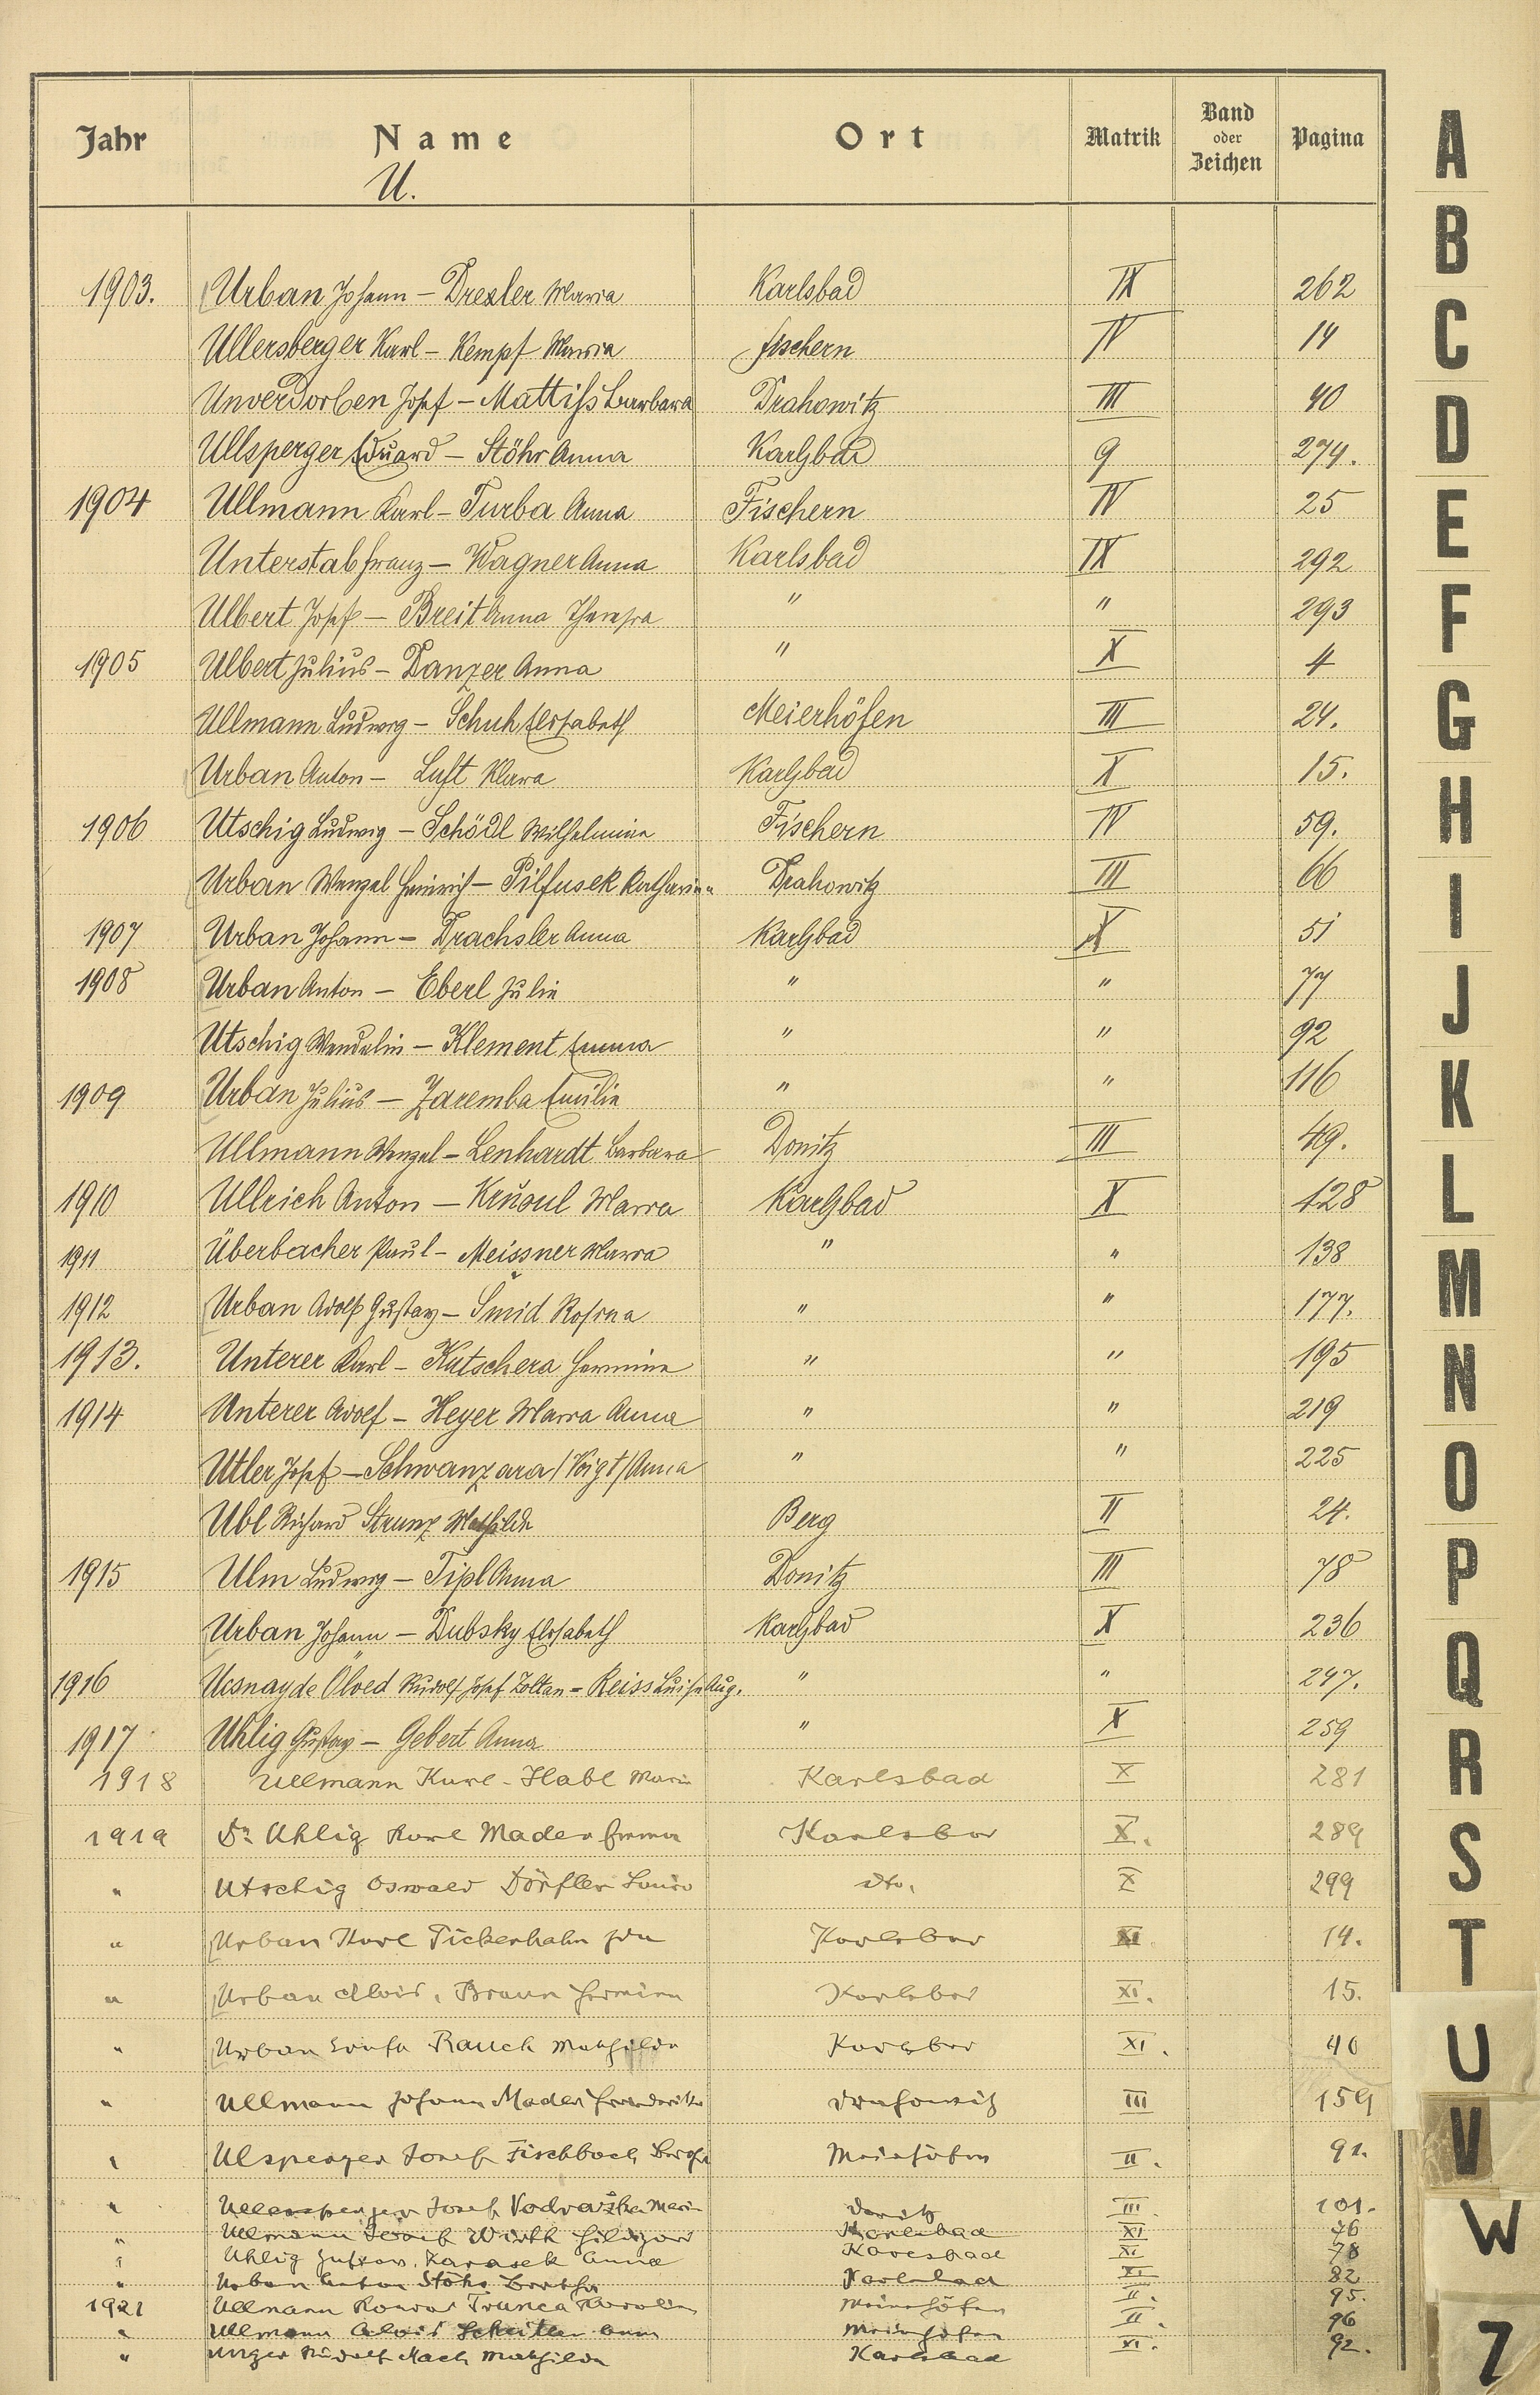 Jahr Name Ort Matrik Band oder Zeichen Pagina
U.
1903. Urban Johann – Drexler Maria Karlsbad IX 262
Ullersberger Karl – Kempf Maria Fischern IV 14
Unverdorben Josef – Mattiss Barbara Drahowitz III 40
Ullsperger Eduard – Stöhr Anna Karlsbad 9 274.
1904 Ullmann Karl – Turba Anna Fischern IV 25
Unterstab Franz – Wagner Anna Karlsbad IX 292
Ulbert Josef – Breit Anna Theresia " " 293
1905 Ulbert Julius – Danzer Anna " X 4
Ullmann Ludwig – Schuh Elisabeth Meierhöfen III 24.
Urban Anton – Luft Klara Karlsbad X 15.
1906 Utschig Ludwig – Schödl Wilhelmine Fischern IV 59.
Urban Wenzel Heinrich – Pilfusek Katharina Drahowitz III 66
1907 Urban Johann – Drachsler Anna Karlsbad X 51
1908 Urban Anton – Eberl Julie " " 77
Utschig Wendelin – Klement Emma " " 92
1909 Urban Julius – Zaremba Emilie " " 116
Ullmann Wenzel – Lenhardt Barbara Donitz III 49.
1910 Ullrich Anton – Maria Karlsbad X 128
1911 Überbacher Paul – Meissner Maria " " 138
1912 Urban Adolf Gustav – Šmid Rosina " " 177.
1913. Unterer Karl – Kutschera Hermine " " 195
1914 Unterer Adolf – Heyer Maria Anna " " 219
Utler Josef – Schwanzara /Voigt/ Anna " " 225
Ubl Richard Strunz Mathilde Berg II 24.
1915 Ulm Ludwig – Tipl Anna Donitz III 78
Urban Johann – Dubsky Elisabeth Karlsbad X 236
1916 Ucsnay de Ölved Rudolf Josef Zoltan – Reiss Luise Aug. " " 247.
1917 Uhlig Gustav – Gebert Anna " X 259
1918 Ullmann Karl – Habl Marie Karlsbad X 281
1919 Dr. Uhlig Karl Mader Emma Karlsbad X. 289
" Utschig Oswald Dörfler Louise dto. X 299
" Urban Karl Pickerhahn Ida Karlsbad XI 14.
" Urban Alois, Braun Hermine Karlsbad XI. 15.
" Urban Rauch Mathilde Karlsbad XI. 40
" Ullmann Johann Mader Friederike Drahowitz III 159
" Ulsperger Josef Fischbach Bertha Meierhöfen II. 91.
" Josef Vodvařka Marie Donitz III. 101.
" Ullmann Josef Wirth Hildegard Karlsbad XI 76
" Uhlig Gustav. Karasek Anna Karlsbad XI 78
" Urban Anton Stöhr Bertha Karlsbad XI 82
1921 Ullmann Konrad Trunca Karolina Meierhöfen II. 95.
" Ullmann Alois Anna Meierhöfen II. 96
" Unger Rudolf Mathilde Karlsbad XI. 92.
A
B
C
D
E
F
G
H
I
J
K
L
M
N
O
P
Q
R
S
T
U
V
W
Z